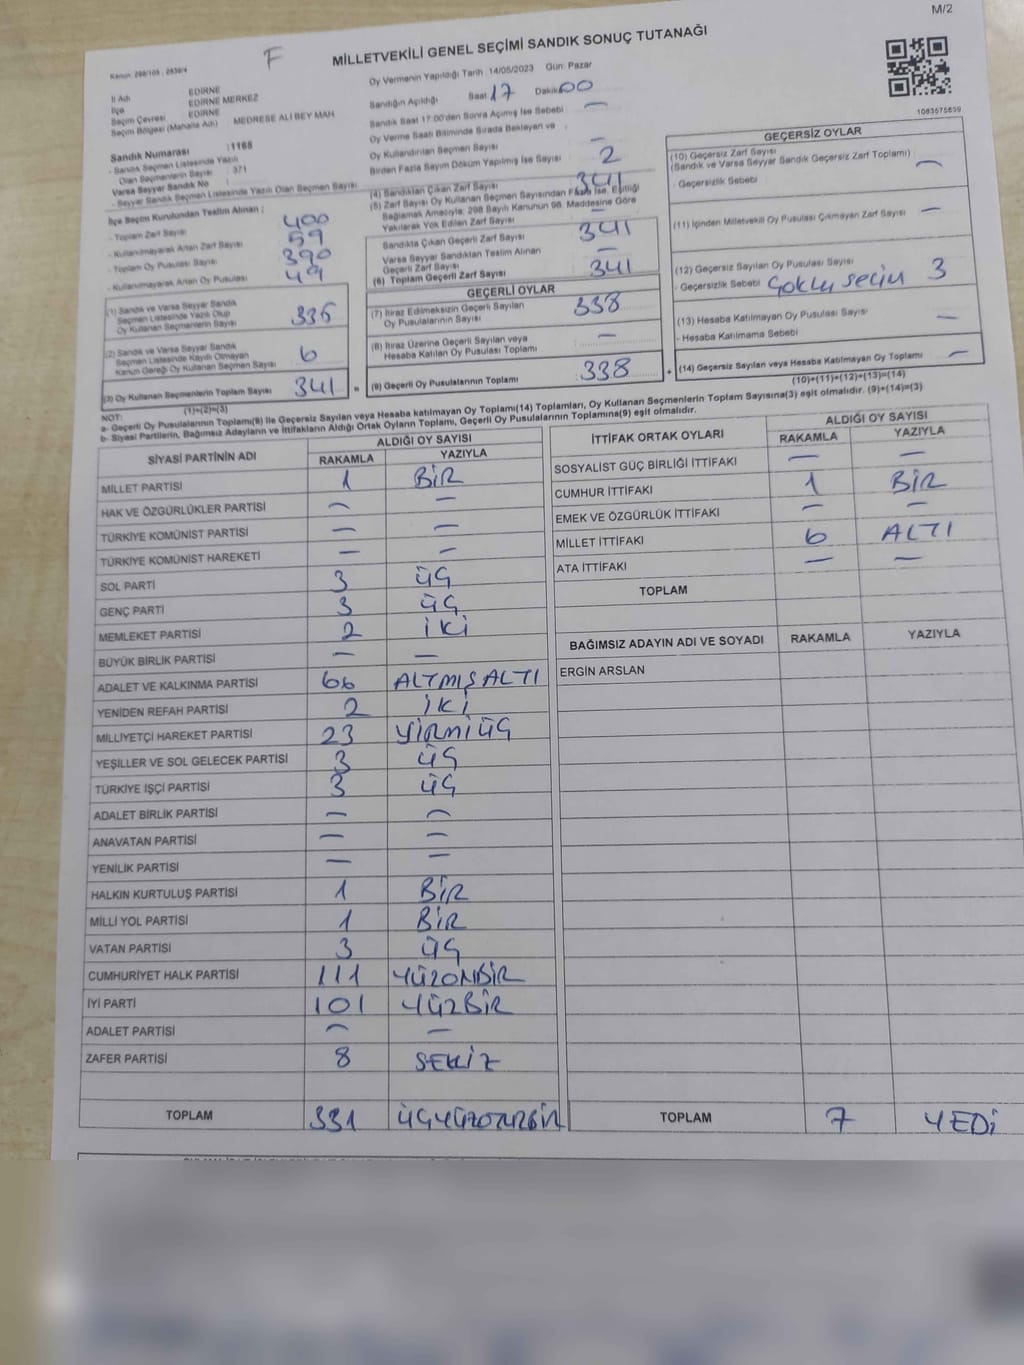 M/2
F
MİLLETVEKİLİ GENEL SEÇİMİ SANDIK SONUÇ TUTANAĞI
1083575639
İl Adı EDİRNE
İlçe EDİRNE MERKEZ
Seçim Çevresi EDİRNE
Seçim Bölgesi (Mahalle Adı) MEDRESE ALİ BEY MAH
Sandık Numarası :1165
- Sandık Seçmen Listesinde Yazılı
Olan Seçmenlerin Sayısı : 371
Varsa Seyyar Sandık No
- Seyyar Sandık Seçmen Listesinde Yazılı Olan Seçmen Sayısı :
İlçe Seçim Kurulundan Teslim Alınan :
- Toplam Zarf Sayısı 400
- Kullanılmayarak Artan Zarf Sayısı 59
- Toplam Oy Pusulası Sayısı 390
- Kullanılmayarak Artan Oy Pusulası 49
(1) Sandık ve Varsa Seyyar Sandık
Seçmen Listesinde Yazılı Olup
Oy Kullanan Seçmenlerin Sayısı 335
(2) Sandık ve Varsa Seyyar Sandık
Seçmen Listesinde Kayıtlı Olmayan
Kanun Gereği Oy Kullanan Seçmen Sayısı 6
(3) Oy Kullanan Seçmenlerin Toplam Sayısı 341 =
(1)+(2)=(3)
Oy Vermenin Yapıldığı Tarih :14/05/2023 Gün: Pazar
Sandığın Açıldığı Saat 17 Dakika 00
Sandık Saat 17:00'den Sonra Açılmış İse Sebebi : —
Oy Verme Saati Bitiminde Sırada Bekleyen ve
Oy Kullandırılan Seçmen Sayısı : —
Birden Fazla Sayım Döküm Yapılmış İse Sayısı : 2
(4) Sandıktan Çıkan Zarf Sayısı 341
(5) Zarf Sayısı Oy Kullanan Seçmen Sayısından Fazla İse, Eşitliği
Sağlamak Amacıyla, 298 Sayılı Kanunun 98. Maddesine Göre
Yakılarak Yok Edilen Zarf Sayısı —
Sandıkta Çıkan Geçerli Zarf Sayısı 341
Varsa Seyyar Sandıktan Teslim Alınan
Geçerli Zarf Sayısı —
(6) Toplam Geçerli Zarf Sayısı 341
GEÇERLİ OYLAR
(7) İtiraz Edilmeksizin Geçerli Sayılan
Oy Pusulalarının Sayısı 338
(8) İtiraz Üzerine Geçerli Sayılan veya
Hesaba Katılan Oy Pusulası Toplamı —
(9) Geçerli Oy Pusulalarının Toplamı 338 +
GEÇERSİZ OYLAR
(10) Geçersiz Zarf Sayısı
(Sandık ve Varsa Seyyar Sandık Geçersiz Zarf Toplamı) —
- Geçersizlik Sebebi
(11) İçinden Milletvekili Oy Pusulası Çıkmayan Zarf Sayısı —
(12) Geçersiz Sayılan Oy Pusulası Sayısı 3
- Geçersizlik Sebebi Çoklu seçim
(13) Hesaba Katılmayan Oy Pusulası Sayısı —
- Hesaba Katılmama Sebebi
(14) Geçersiz Sayılan veya Hesaba Katılmayan Oy Toplamı —
(10)+(11)+(12)+(13)=(14)
NOT:
a- Geçerli Oy Pusulalarının Toplamı(9) ile Geçersiz Sayılan veya Hesaba katılmayan Oy Toplamı(14) Toplamları, Oy Kullanan Seçmenlerin Toplam Sayısına(3) eşit olmalıdır. (9)+(14)=(3)
b- Siyasi Partilerin, Bağımsız Adayların ve İttifakların Aldığı Ortak Oyların Toplamı, Geçerli Oy Pusulalarının Toplamına(9) eşit olmalıdır.
SİYASİ PARTİNİN ADI ALDIĞI OY SAYISI
RAKAMLA YAZIYLA
MİLLET PARTİSİ 1 BİR
HAK VE ÖZGÜRLÜKLER PARTİSİ — —
TÜRKİYE KOMÜNİST PARTİSİ — —
TÜRKİYE KOMÜNİST HAREKETİ — —
SOL PARTİ 3 ÜÇ
GENÇ PARTİ 3 ÜÇ
MEMLEKET PARTİSİ 2 İKİ
BÜYÜK BİRLİK PARTİSİ — —
ADALET VE KALKINMA PARTİSİ 66 ALTMIŞALTI
YENİDEN REFAH PARTİSİ 2 İKİ
MİLLİYETÇİ HAREKET PARTİSİ 23 YİRMİÜÇ
YEŞİLLER VE SOL GELECEK PARTİSİ 3 ÜÇ
TÜRKİYE İŞÇİ PARTİSİ 3 ÜÇ
ADALET BİRLİK PARTİSİ — —
ANAVATAN PARTİSİ — —
YENİLİK PARTİSİ — —
HALKIN KURTULUŞ PARTİSİ 1 BİR
MİLLİ YOL PARTİSİ 1 BİR
VATAN PARTİSİ 3 ÜÇ
CUMHURİYET HALK PARTİSİ 111 YÜZONBİR
İYİ PARTİ 101 YÜZBİR
ADALET PARTİSİ — —
ZAFER PARTİSİ 8 SEKİZ
TOPLAM 331 ÜÇYÜZOTUZBİR
İTTİFAK ORTAK OYLARI ALDIĞI OY SAYISI
RAKAMLA YAZIYLA
SOSYALİST GÜÇ BİRLİĞİ İTTİFAKI — —
CUMHUR İTTİFAKI 1 BİR
EMEK VE ÖZGÜRLÜK İTTİFAKI — —
MİLLET İTTİFAKI 6 ALTI
ATA İTTİFAKI — —
TOPLAM
BAĞIMSIZ ADAYIN ADI VE SOYADI RAKAMLA YAZIYLA
ERGİN ARSLAN
TOPLAM 7 YEDİ